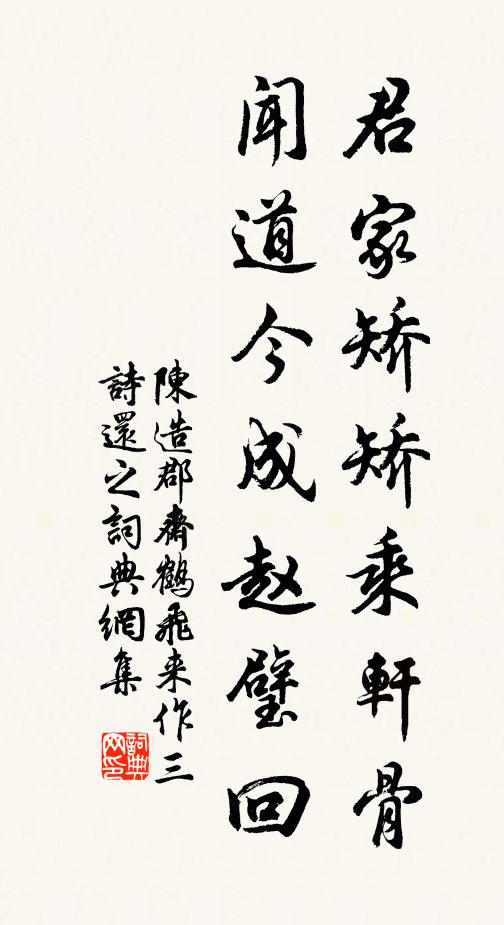 君家矫矫乘軒骨
聞道今成赵璧回
陳造郡齋鶴飛来作三
詩還之詞典網集
詞典
网印